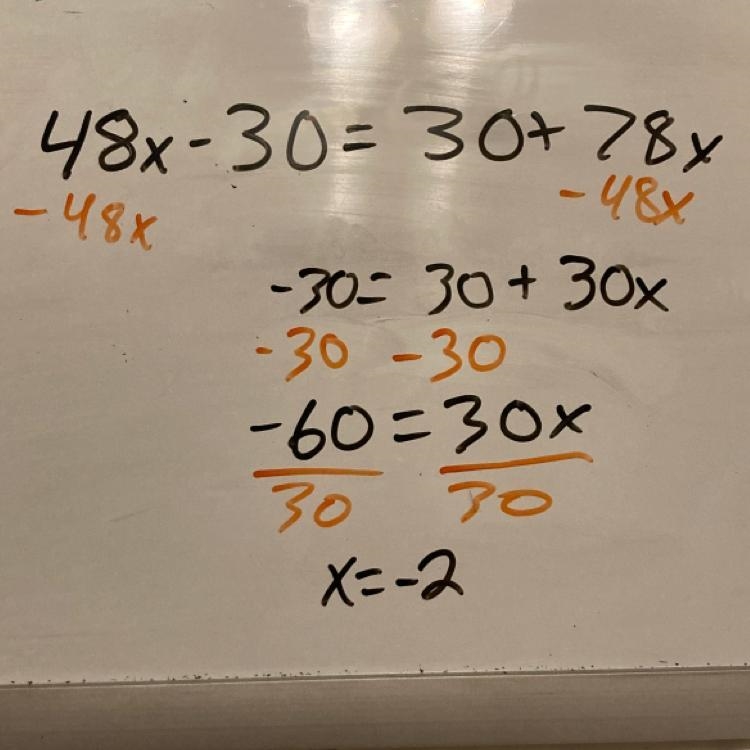 48x - 30 = 30 + 78x
- 48x - 48x
-30 = 30 + 30x
-30 -30
-60 = 30x
30 30
x = -2